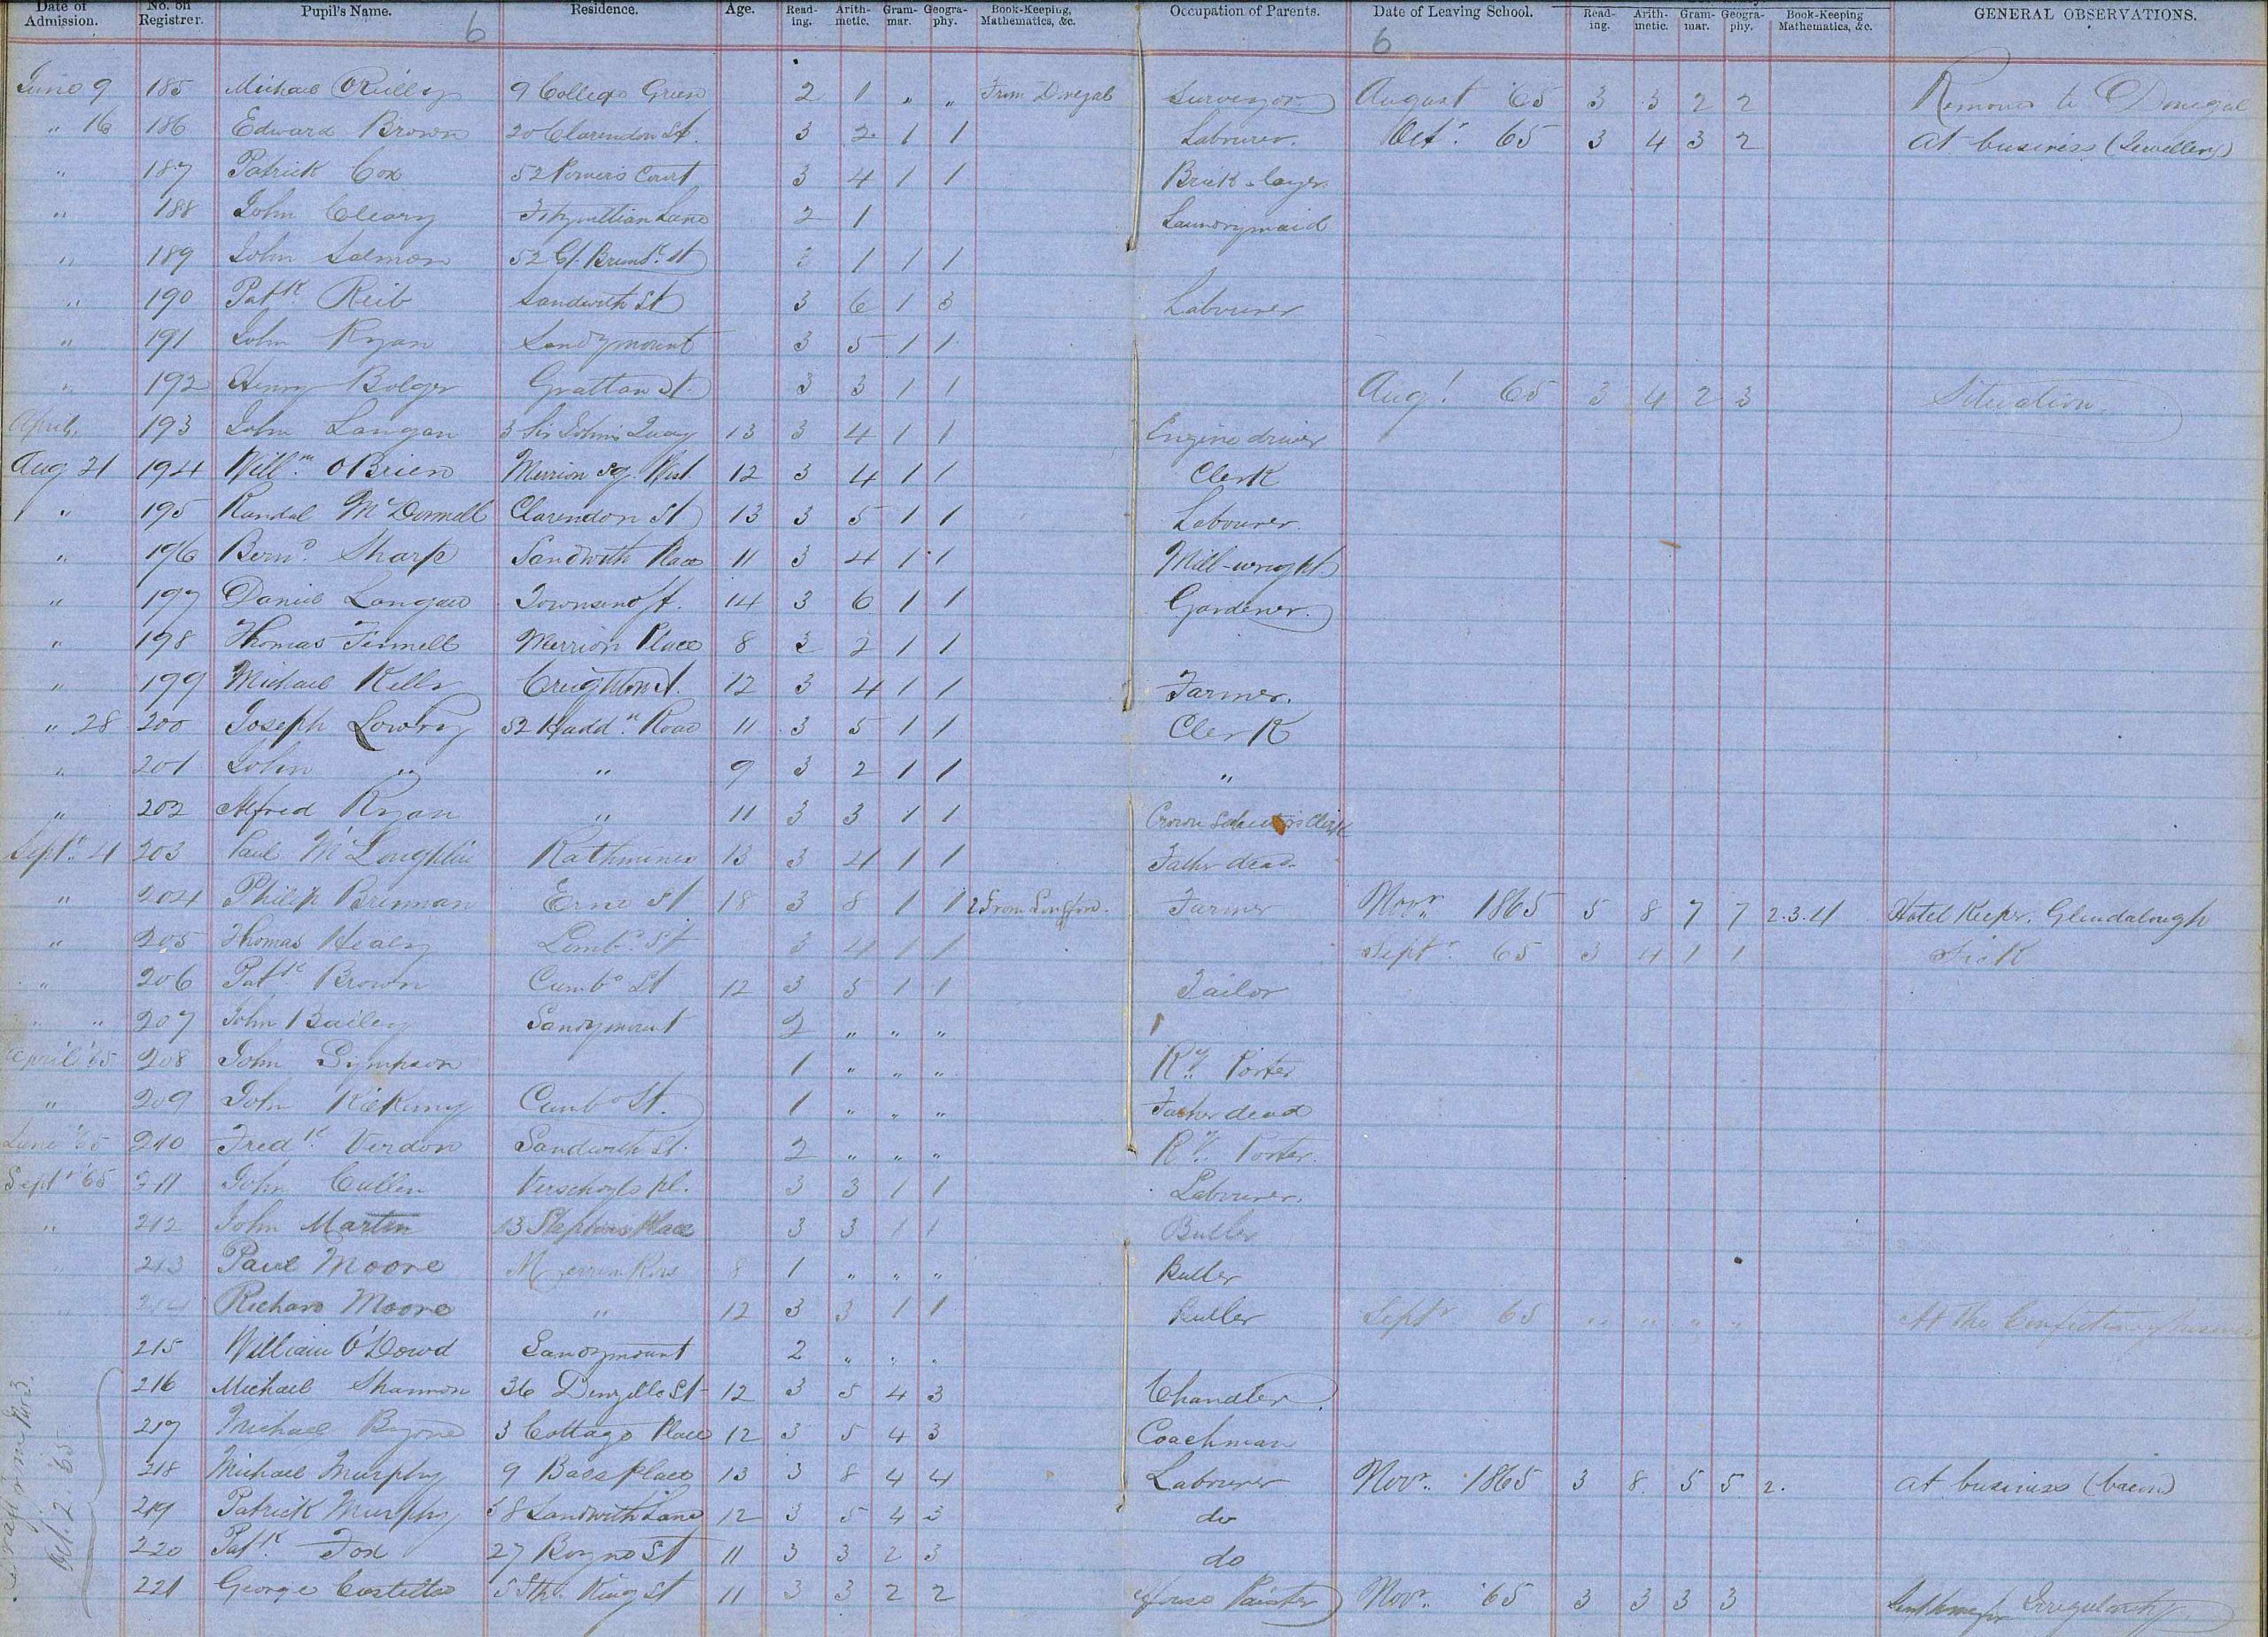 Date of Admission. No. on Registrer. Pupil's Name. Residence. Age. Read-ing. Arith-metic. Gram-mar. Geogra-phy. Book-Keeping, Mathematics, &c. Occupation of Parents. Date of Leaving School. Read-ing. Arith-metic. Gram-mar. Geogra-phy. Book-Keeping Mathematics, &c. GENERAL OBSERVATIONS.
6 6
June 9 185 Michael OReilly 9 College Green 2 1 " " From Donegal Surveyor August 65 3 3 2 2 Removed to Donegal
" 16 186 Edward Brown 20 Clarendon St. 3 2 1 1 Labourer. Octr. 65 3 4 3 2 at business (Jewellery)
" 187 Patrick Cox 52 Power's Court 3 4 1 1 Brick-layer
" 188 John Cleary Fitzwilliam Lane 2 1 Laundrymaid
" 189 John Salmon 52 Gt. Brunsk. St 1 1 1
" 190 Patk. Reib Sandwith St 3 6 1 3 Labourer
" 191 John Ryan Sandymount 3 5 1 1
" 192 Henry Bolger Grattan St. 3 3 1 1 Augt. 65 3 4 2 3 Situation
April 193 John Langan 3 Sir John's Quay 13 3 4 1 1 Engine driver
Aug 21 194 Willm. OBrien Merrion Sq. West 12 3 4 1 1 Clerk
" 195 Randal McDonnell Clarendon St 13 3 5 1 1 Labourer.
" 196 Bernd. Sharp Sandwith Place 11 3 4 1 1 Mill-wright
" 197 Daniel Langan Townsend St. 14 3 6 1 1 Gardener.
" 198 Thomas Fennell Merrion Place 8 3 2 1 1
" 199 Michael Kelly Creighton St. 12 3 4 1 1 Farmer.
" 28 200 Joseph Lowry 52 Haddn. Road 11 3 5 1 1 Clerk
" 201 John " " 9 3 2 1 1 "
" 202 Alfred Ryan " 11 3 3 1 1 Crown Solicitor's Clerk
Septr. 4 203 Paul McLoughlin Rathmines 13 3 4 1 1 Father dead
" 204 Philip Brennan Erne St 18 3 8 1 1 2 From Longford. Farmer Novr. 1865 5 8 7 7 2.3.4 Hotel Keeper. Glendalough
" 205 Thomas Healy Lombd. St 3 4 1 1 Septr. 65 3 4 1 1 Sick
" 206 Patk Brown Cumbd St 12 3 3 1 1 Tailor
" " 207 John Bailey Sandymount 2 " " "
April '65 208 John Sympson 1 " " " Ry. Porter
" 209 John Kilkenny Cumbd St. 1 " " " Father dead
June '65 210 Fredk. Verdon Sandwith St. 2 " " " Ry. Porter.
Septr '65 211 John Cullen Verschoyle pl. 3 3 1 1 Labourer.
" 212 John Martin 13 Stephens Place 3 3 1 1 Butler
" 213 Paul Moore Merrion Row 8 1 " " " Butler
" 214 Richard Moore " 12 3 3 1 1 Butler Septr 65 " " " " At the Confectionery business
215 William O'Dowd Sandymount 2 " " "
216 Michael Shannon 36 Denzille St 12 3 5 4 3 Chandler.
217 Michael Byrne 3 Cottage Place 12 3 5 4 3 Coachman
Oct. 2. 65
218 Michael Murphy 9 Bass Place 13 3 8 4 4 Labourer Novr. 1865 3 8 5 5 2. at business (bacon)
219 Patrick Murphy 38 Sandwith Lane 12 3 5 4 3 do
220 Patk. Fox 27 Boyne St 11 3 3 2 3 do
221 George Costello 5 Sth. King St 11 3 3 2 2 House Painter Novr. '65 3 3 3 3 Sent home for Irregularity.